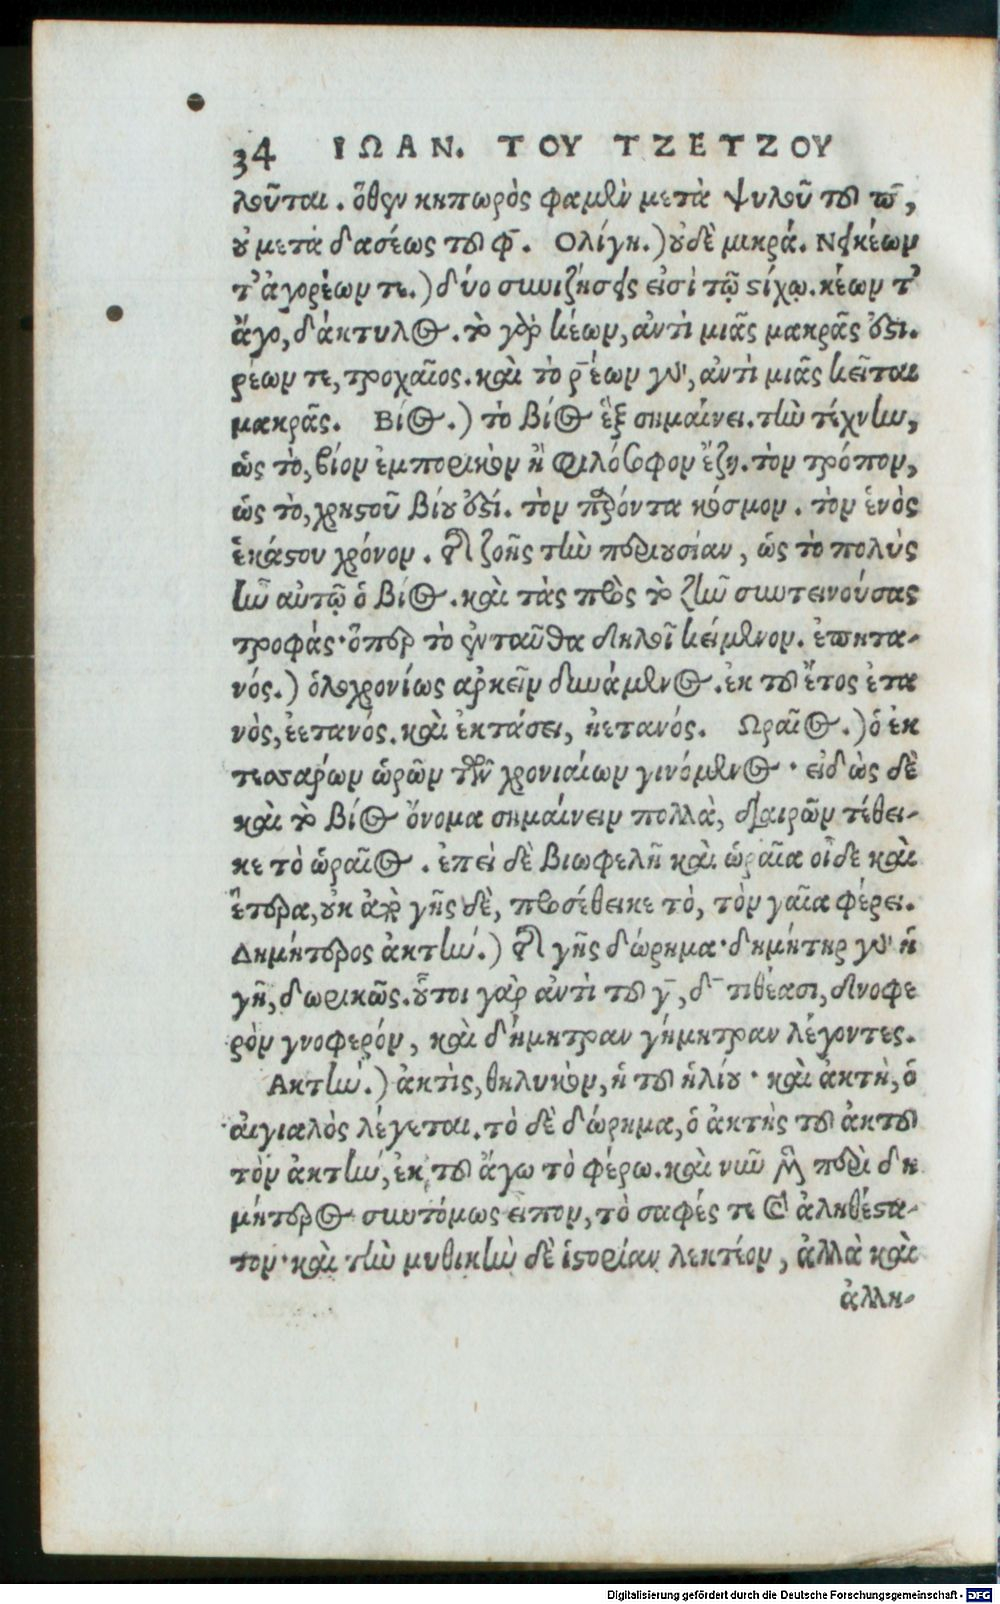 34 ΙΩΑΝ. ΤΟΥ ΤΖΕΤΖΟΥ
λοῦται. ὅθεν κηπωρὸς φαμὲν μετὰ ψυλοῦ τοῦ π̄,
οὐ μετὰ δασέως τοῦ φ̄. Ολίγη.) οὐδὲ μικρά. Νεικέων
τ' ἀγορέων τε.) δύο συνιζήσεις εἰσὶ τῷ στίχῳ. κέων τ'
ἄγο, δάκτυλος. τὸ γὰρ κέων, ἀντὶ μιᾶς μακρᾶς ὅστι.
ρέων τε, τροχαῖος. καὶ τὸ ρ̄έων γὰρ, ἀντὶ μιᾶς κεῖται
μακρᾶς. Βίος.) τὸ βίος ἓξ σημαίνει. τὴν τέχνην,
ὡς τὸ, βίον ἐμπορικὸν ἢ φιλόσοφον ἔζη. τὸν τρόπον,
ὡς τὸ, χρηστοῦ βίου ὅστί. τὸν παρόντα κόσμον. τὸν ἑνὸς
ἑκάστου χρόνον. τῆς ζοῆς τὴν περιουσίαν, ὡς τὸ πολύς
ἦν αὐτῷ ὁ βίος. καὶ τὰς πρὸς τὸ ζῆν συντεινούσας
τροφάς· ὅπερ τὸ ἐνταῦθα δηλοῖ κείμενον. ἐπηετα-
νός.) ὁλοχρονίως ἀρκεῖν δυνάμενος. ἐκ τοῦ ἔτος ἐτα
νὸς, ἐετανός. καὶ ἐκτάσει, ἠετανός. Ωραῖος.) ὁ ἐκ
τεσσαρων ὡρῶν τῶν χρονιαίων γινόμενος· εἰδὼς δὲ
καὶ τὸ βίος ὄνομα σημαίνειν πολλὰ, διαιρῶν τέθει-
κε τὸ ὡραῖος. ἐπεὶ δὲ βιωφελῆ καὶ ὡραῖα οἶδε καὶ
ἕτερα, οὐκ ἀπὸ γῆς δὲ, προσέθεικε τὸ, τὸν γαῖα φέρει.
Δημήτερος ἀκτήν.) τῆς γῆς δώρημα· δημήτηρ γὰρ ἡ
γῆ, δωρικῶς. οὗτοι γὰρ ἀντὶ τοῦ γ̄, δ̄ τιθέασι, δνοφε
ρὸν γνοφερόν, καὶ δήμητραν γήμητραν λέγοντες.
Ακτήν.) ἀκτὶς, θηλυκὸν, ἡ τοῦ ἡλίου· καὶ ἀκτὴ, ὁ
αἰγιαλὸς λέγεται. τὸ δὲ δώρημα, ὁ ἀκτὴς τοῦ ἀκτοῦ
τὸν ἀκτήν, ἐκ τοῦ ἄγω τὸ φέρω. καὶ νῦν περὶ δη
μήτερος συντόμως εἶπον, τὸ σαφές τε καὶ ἀληθέστα-
τον· καὶ τὴν μυθικὴν δὲ ἱστορίαν λεκτέον, ἀλλὰ καὶ
ἀλλη-
Digitalisierung gefördert durch die Deutsche Forschungsgemeinschaft - DFG